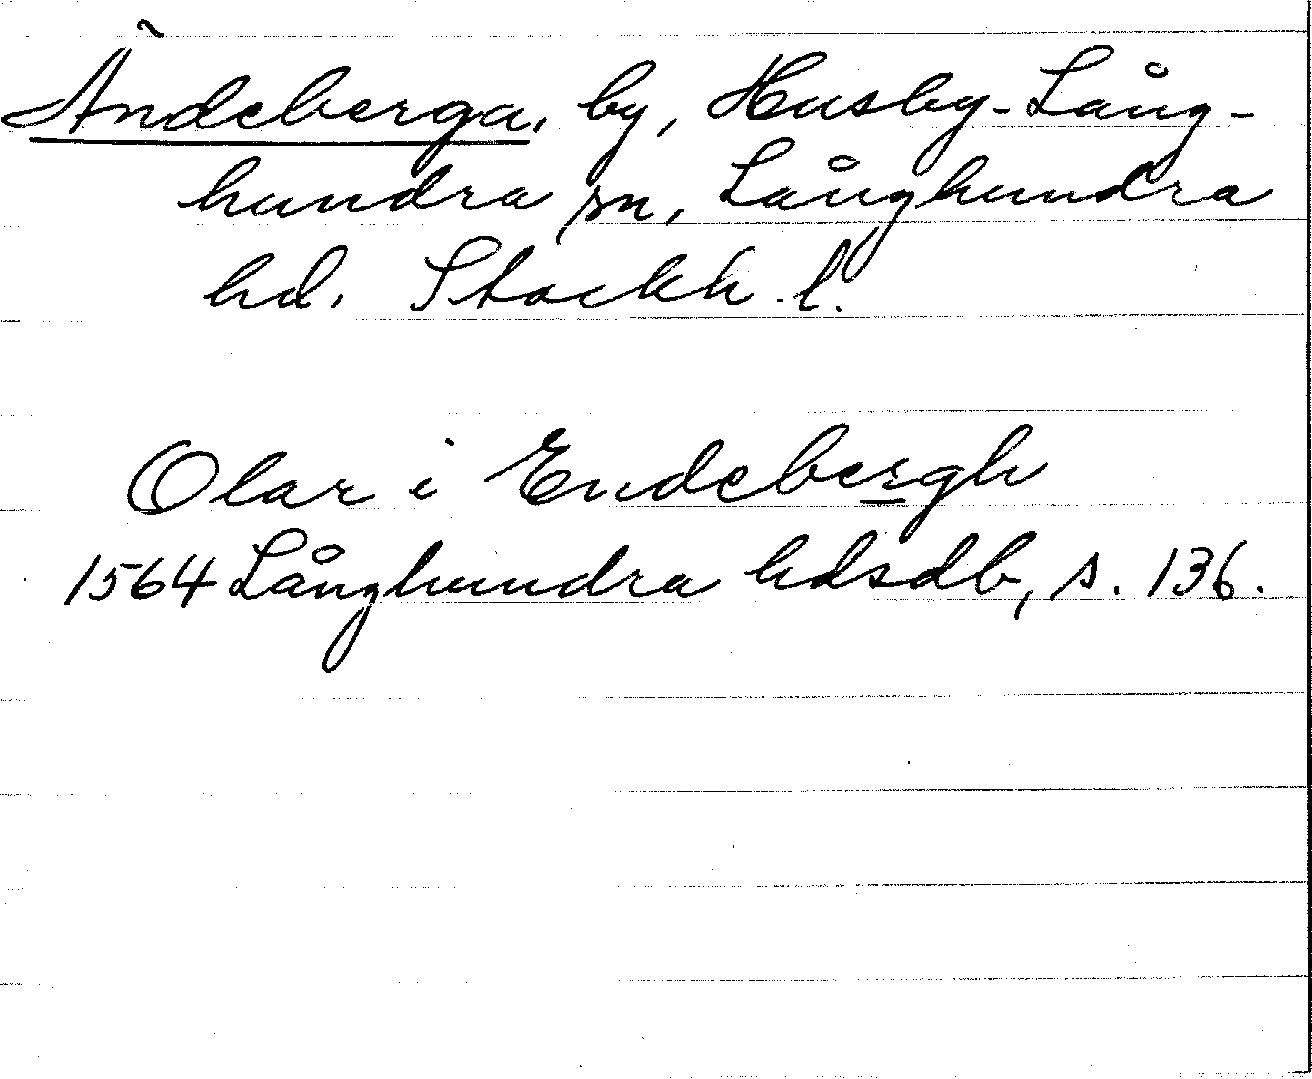 Ändeberga, by, Husby-Lång-
hundra sn, Långhundra
hd. Stockh. l.
Olar i Endebergh
1564 Långhundra hdsdb, s. 136.